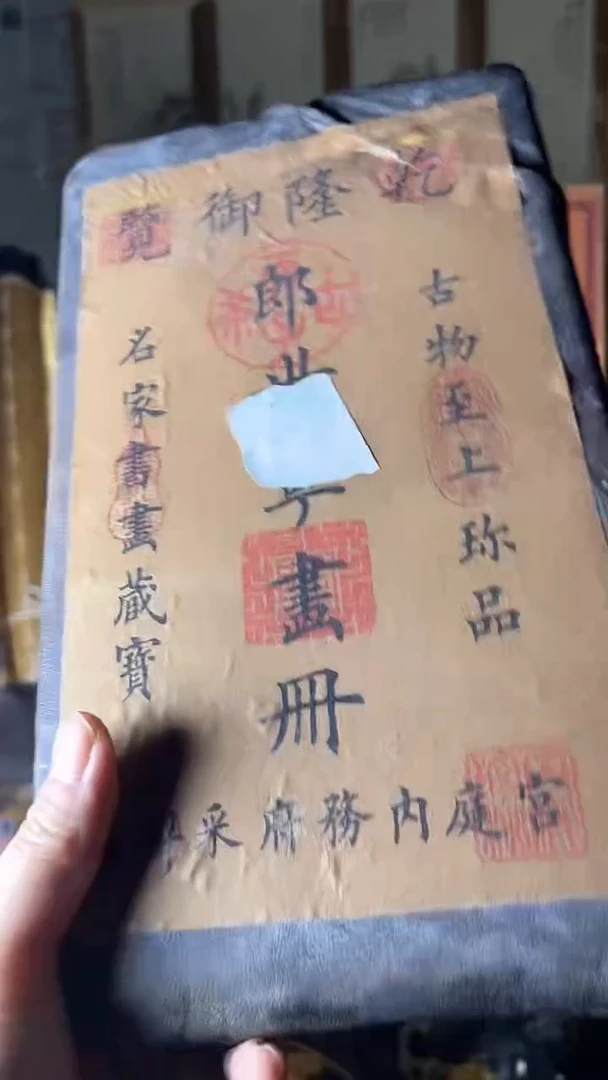 乾隆御覽
古物至上珎品
郎世宁畫冊
名家書畫蔵寶
宮庭内務府采